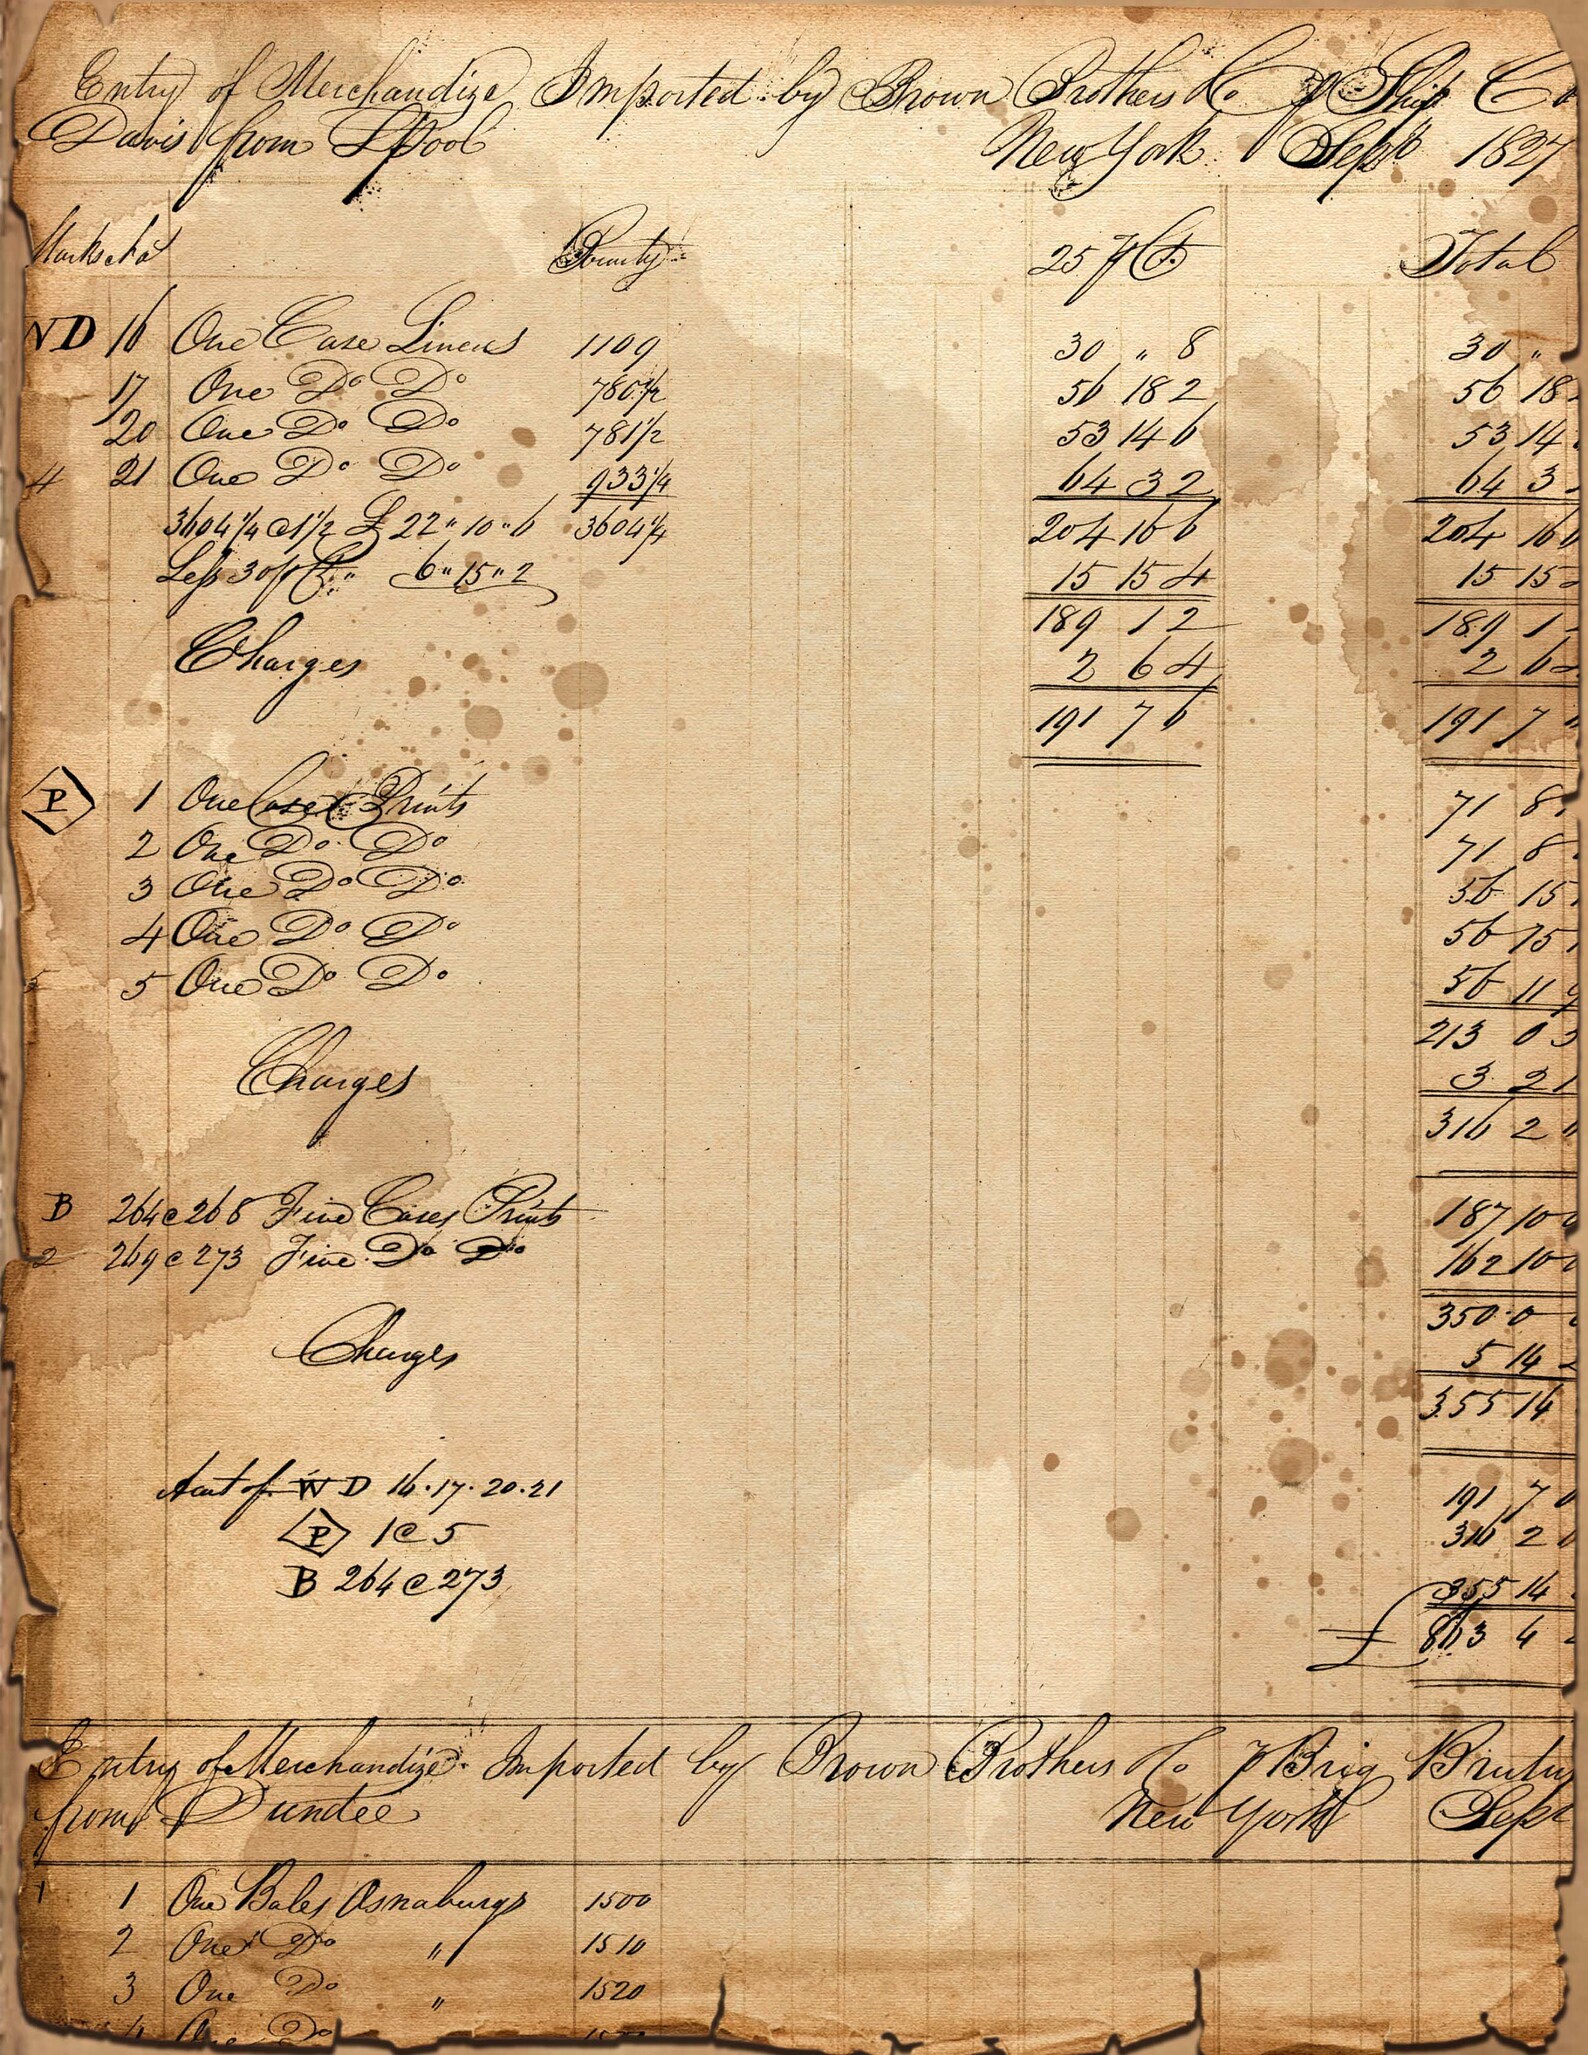 Entry of Merchandize Imported by Brown Brothers & Co p Ship Co
Davis from LPool New York Sept 1827
Marks & No Bounty 25 p Ct. Total
WD 16 One Case Linens 1109 30 " 8 30 "
17 One Do Do 780 1/2 56 18 2 56 18
20 One Do Do 781 1/2 53 14 6 53 14
4 21 One Do Do 933 1/4 64 3 2 64 3
3604 1/4 @ 1 1/2 £ 22 " 10 " 6 3604 1/4 204 16 6 204 16
Less 30 p Ct. " 6 " 15 " 2 15 15 4 15 15
189 1 2 189 1
Charges 2 6 4 2 6
191 7 6 191 7
P 1 One Case Prints 71 8
2 One Do Do 71 8
3 One Do Do 56 15
4 One Do Do 56 15
5 5 One Do Do 56 11 9
213 0 3
Charges 3 2 1
316 2 "
B 264 @ 268 Five Cases Prints 187 10 0
2 269 @ 273 Five Do Do 162 10 0
350 0
Charges 5 14
355 14
Amt of WD 16 . 17 . 20 . 21 191 7
P 1 @ 5 316 2
B 264 @ 273 355 14
£ 863 4
Entry of Merchandize Imported by Brown Brothers & Co p Brig Brutus
from Dundee New York Sept
1 1 One Bales Osnaburgs 1500
2 One Do " 1510
3 One Do " 1520
4 One Do